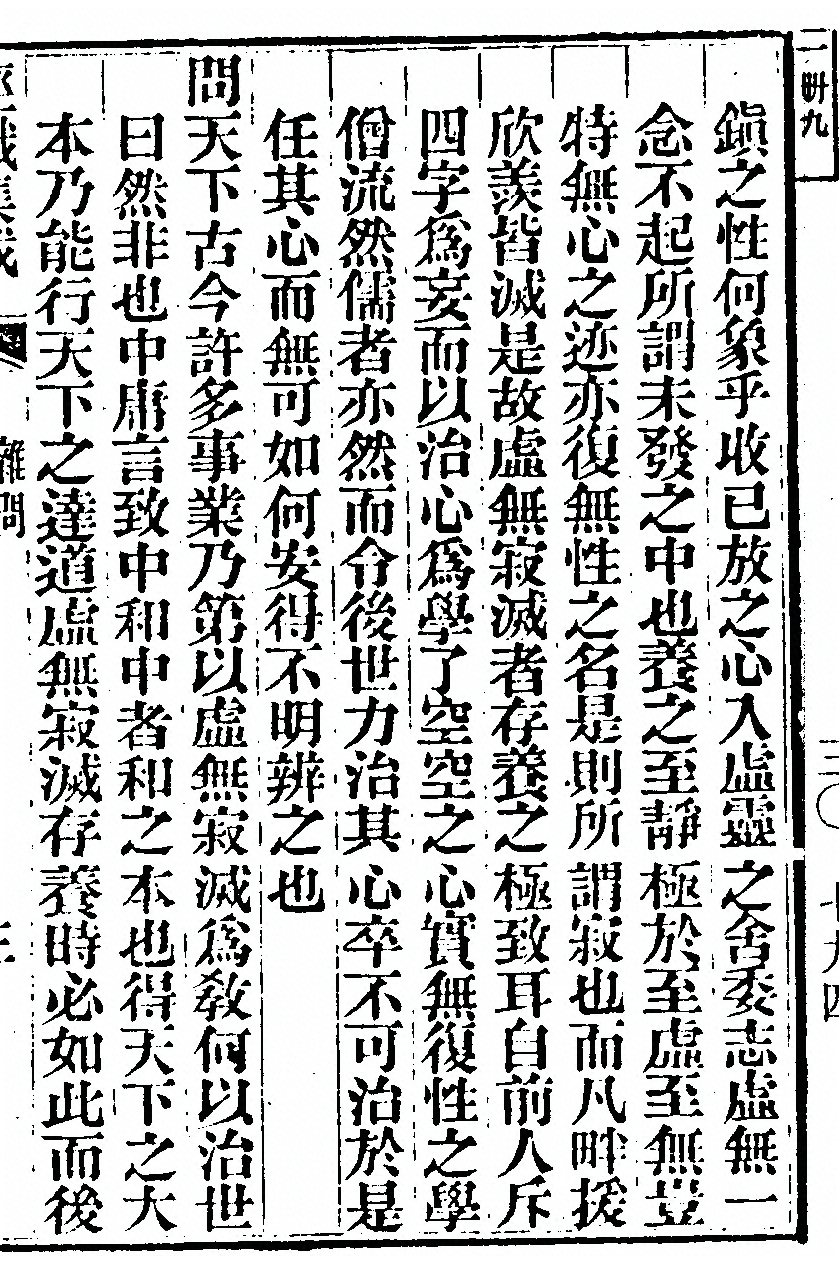 鎭之性何象乎收已放之心入虛靈之舍委志虛無一
念不起所謂未發之中也養之至靜極於至虛至無豈
特無心之迹亦復無性之名是則所謂寂也而凡畔援
欣羨皆滅是故虛無寂滅者存養之極致耳自前人斥
四字爲妄而以治心爲學了空空之心實無復性之學
僧流然儒者亦然而令後世力治其心卒不可治於是
任其心而無可如何安得不明辨之也
問天下古今許多事業乃第以虛無寂滅爲敎何以治世
曰然非也中庸言致中和中者和之本也得天下之大
本乃能行天下之達道虛無寂滅存養時必如此而後
雜問